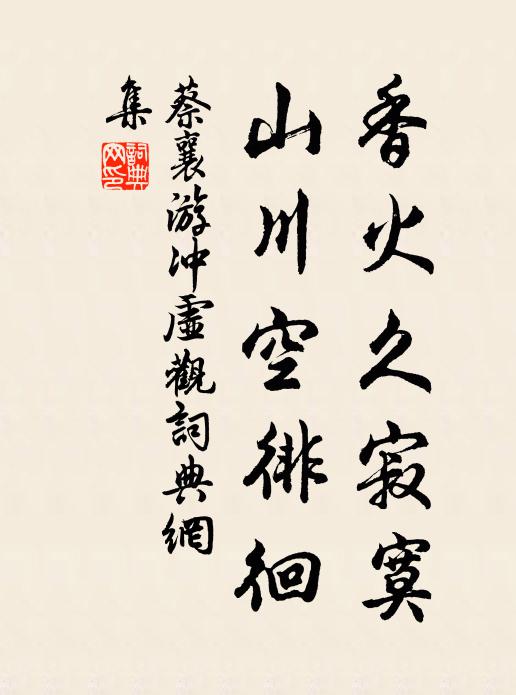 香火久寂寞
山川空徘徊
蔡襄游冲虛觀詞典網
集
詞典
网印